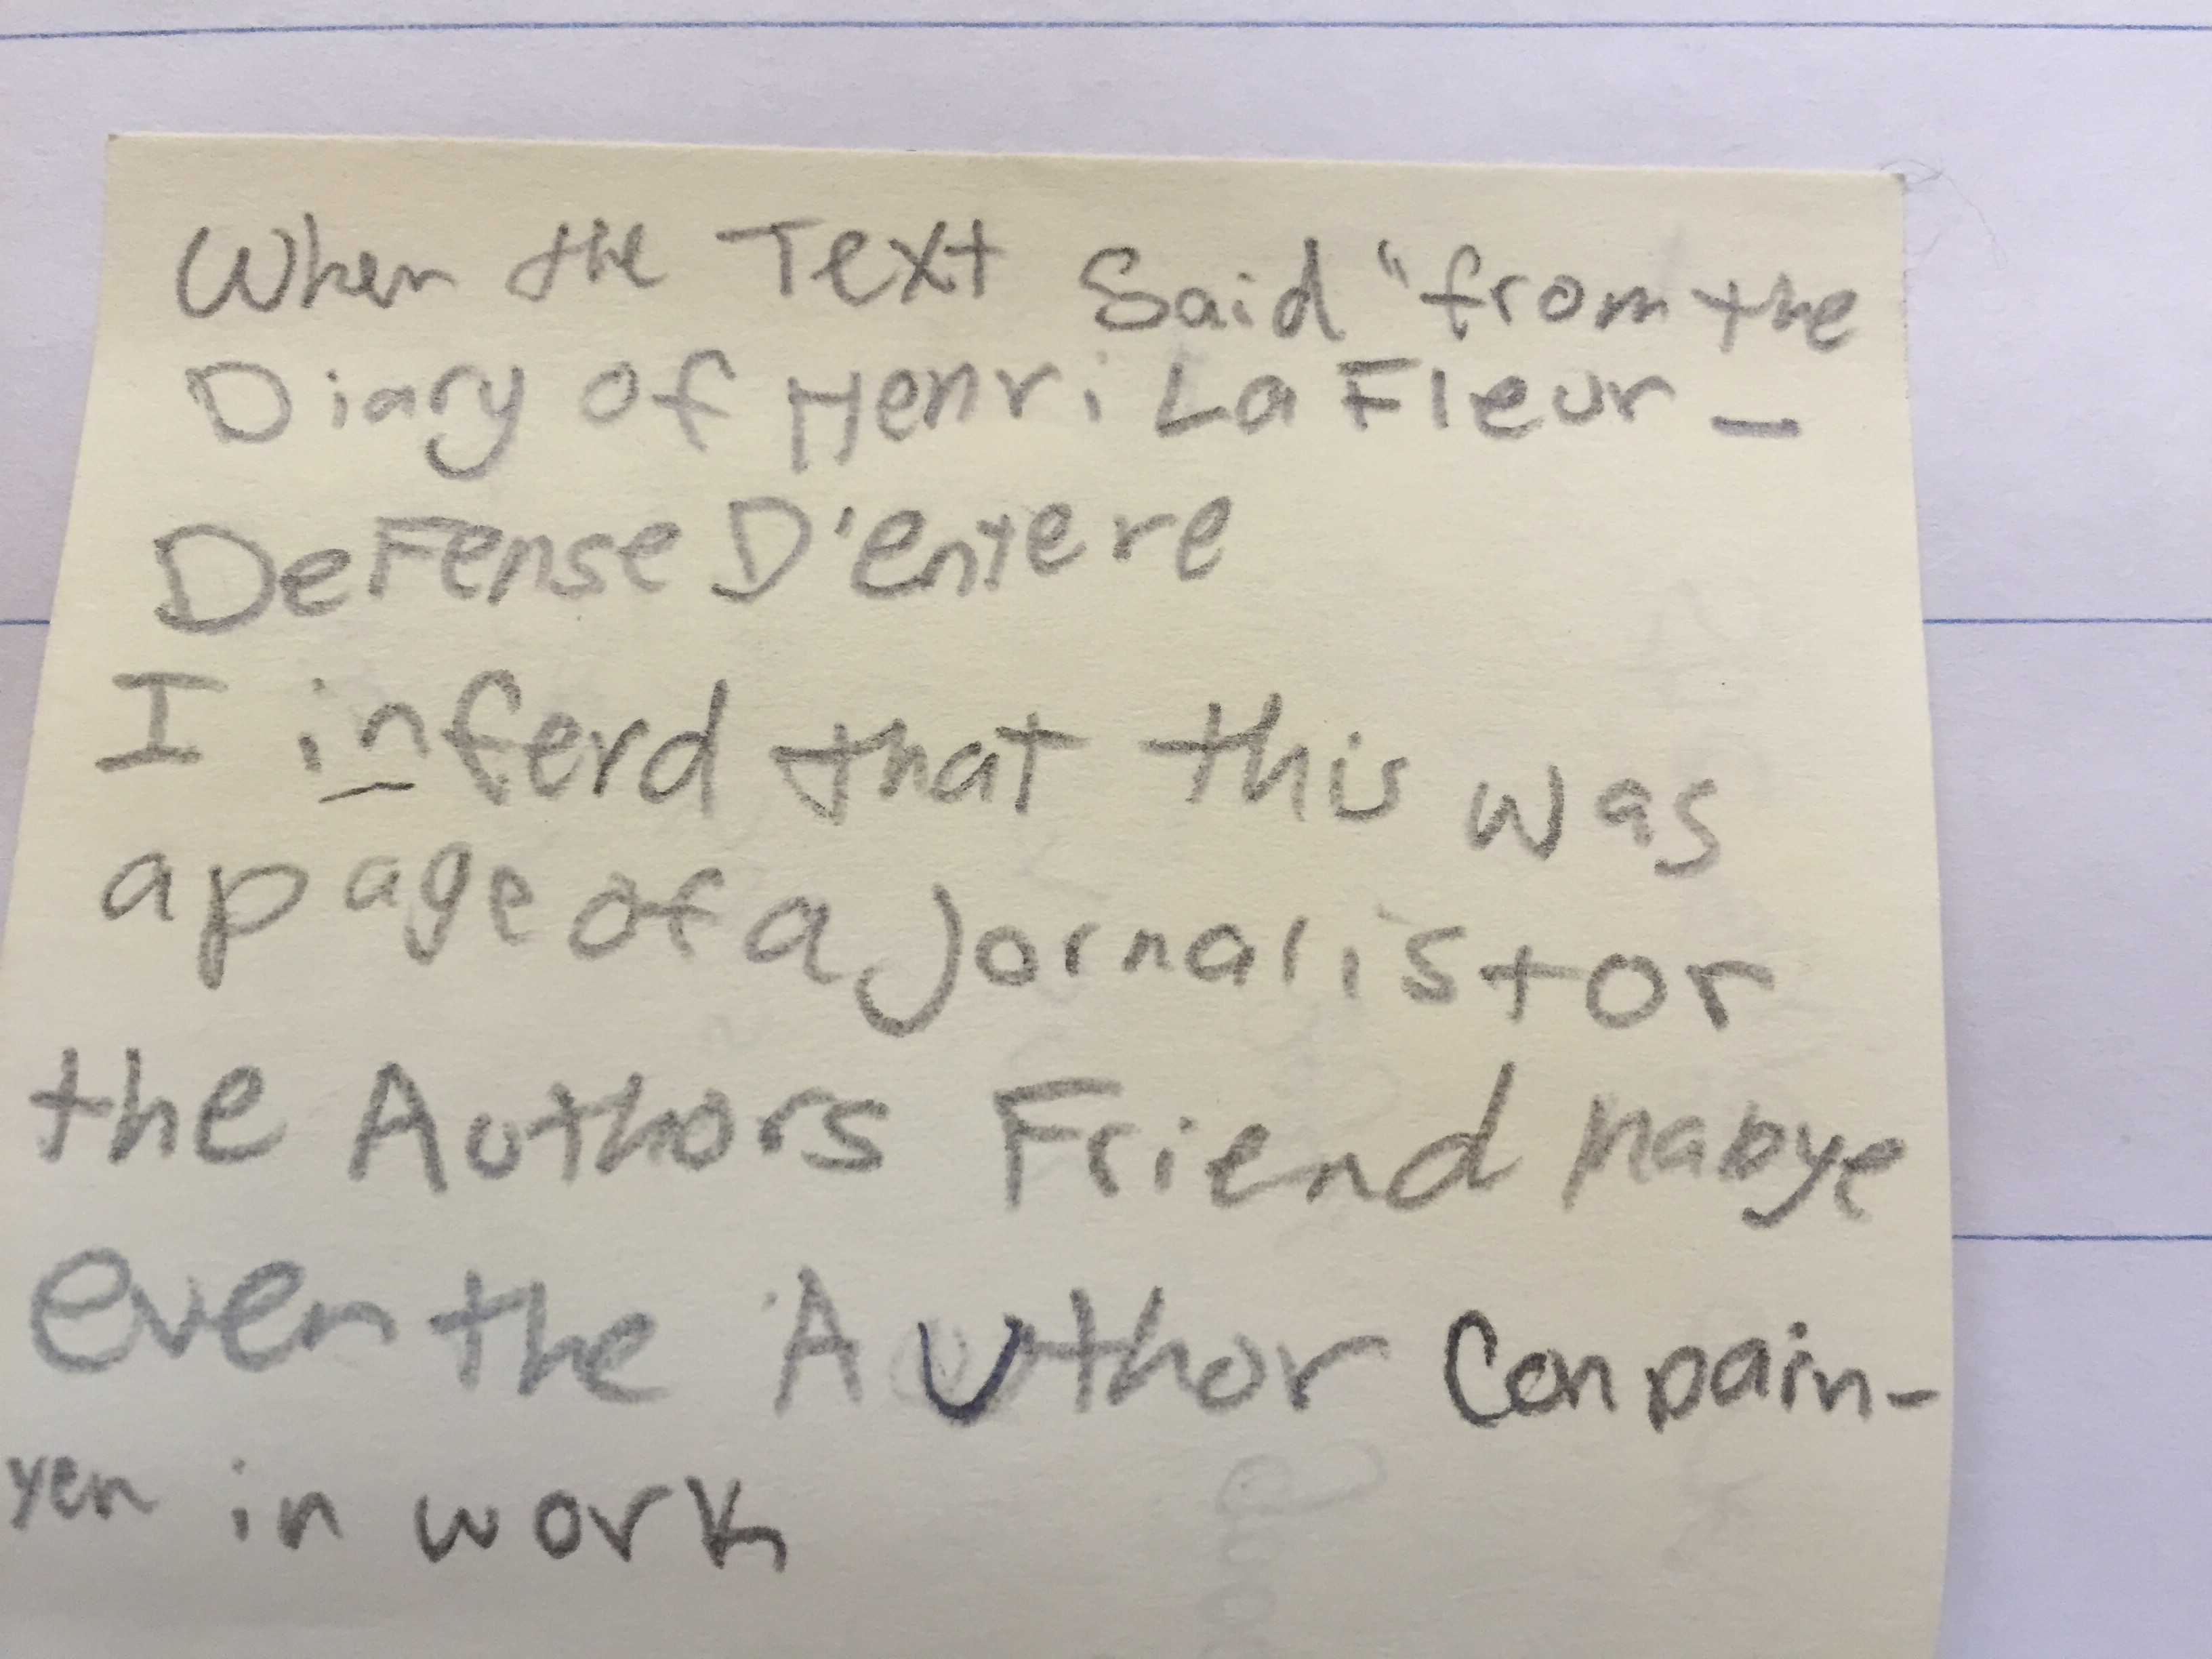 When the Text Said "from the
Diary of Henri La Fleur -
Defense D'entere
I inferd that this was
a page of a Jornalist or
the Authors Friend mabye
even the Author Conpain-
yen in work